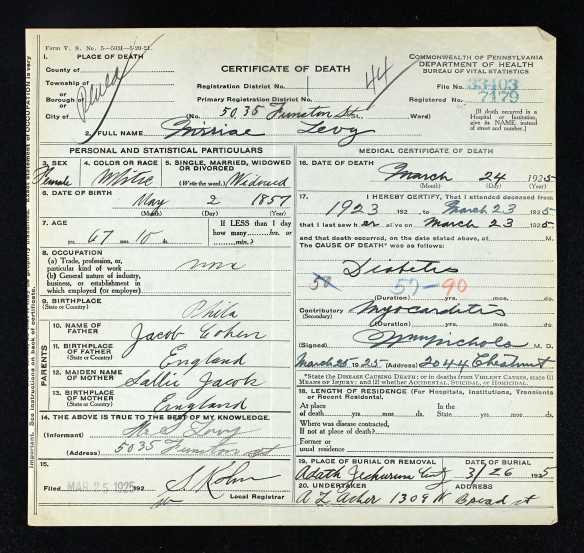 Form V. S. No. 5—50M—5-20-21.
1. PLACE OF DEATH
County of
Township of
or
Borough of
or
City of
Phila
CERTIFICATE OF DEATH
Registration District No.
Primary Registration District No.
44
(No. 5035 Funston St St.,
Ward)
COMMONWEALTH OF PENNSYLVANIA
DEPARTMENT OF HEALTH
BUREAU OF VITAL STATISTICS
File No. 33403
Registered No. 7179
[If death occurred in a
Hospital or Institution,
give its NAME, instead
of street and number.]
2. FULL NAME Levy
PERSONAL AND STATISTICAL PARTICULARS
3. SEX
Female
4. COLOR OR RACE
White
5. SINGLE, MARRIED, WIDOWED
OR DIVORCED
(Write the word.) Widowed
6. DATE OF BIRTH
May 2 1857
(Month) (Day) (Year)
7. AGE
67 yrs. 10 mos. ds.
If LESS than 1 day
how many hrs. or
min.?
8. OCCUPATION
(a) Trade, profession, or
particular kind of work
(b) General nature of industry,
business, or establishment in
which employed (or employer)
none
9. BIRTHPLACE
(State or Country)
Phila
PARENTS
10. NAME OF
FATHER
Jacob Cohen
11. BIRTHPLACE
OF FATHER
(State or Country)
England
12. MAIDEN NAME
OF MOTHER
Sallie Jacob
13. BIRTHPLACE
OF MOTHER
(State or Country)
England
14. THE ABOVE IS TRUE TO THE BEST OF MY KNOWLEDGE.
(Informant) Mr. S Levy
(Address) 5035 Funston St
15.
Filed MAR 25 1925 192
S. Kohn
Local Registrar
MEDICAL CERTIFICATE OF DEATH
16. DATE OF DEATH
March 24 1925
(Month) (Day) (Year)
17. I HEREBY CERTIFY, That I attended deceased from
1923 192 , to March 23 1925
that I last saw h er alive on March 23 1925
and that death occurred, on the date stated above, at M.
The CAUSE OF DEATH* was as follows:
Diabetes
50 57-90
(Duration) yrs. mos. ds.
Contributory Myocarditis
(Secondary)
(Duration) yrs. mos. ds.
(Signed) Nichols M. D.
March 25 1925 (Address) 2044 Chestnut
*State the DISEASE CAUSING DEATH; or in deaths from VIOLENT CAUSES, state (1)
MEANS OF INJURY; and (2) whether ACCIDENTAL, SUICIDAL, or HOMICIDAL.
18. LENGTH OF RESIDENCE (For Hospitals, Institutions, Transients
or Recent Residents).
At place
of death yrs. mos. ds.
In the
State yrs. mos. ds.
Where was disease contracted,
If not at place of death?
Former or
usual residence
19. PLACE OF BURIAL OR REMOVAL
Adath Jeshurun Cemty
DATE OF BURIAL
3/26 1925
20. UNDERTAKER
A L Asher
ADDRESS
1309 N Broad st